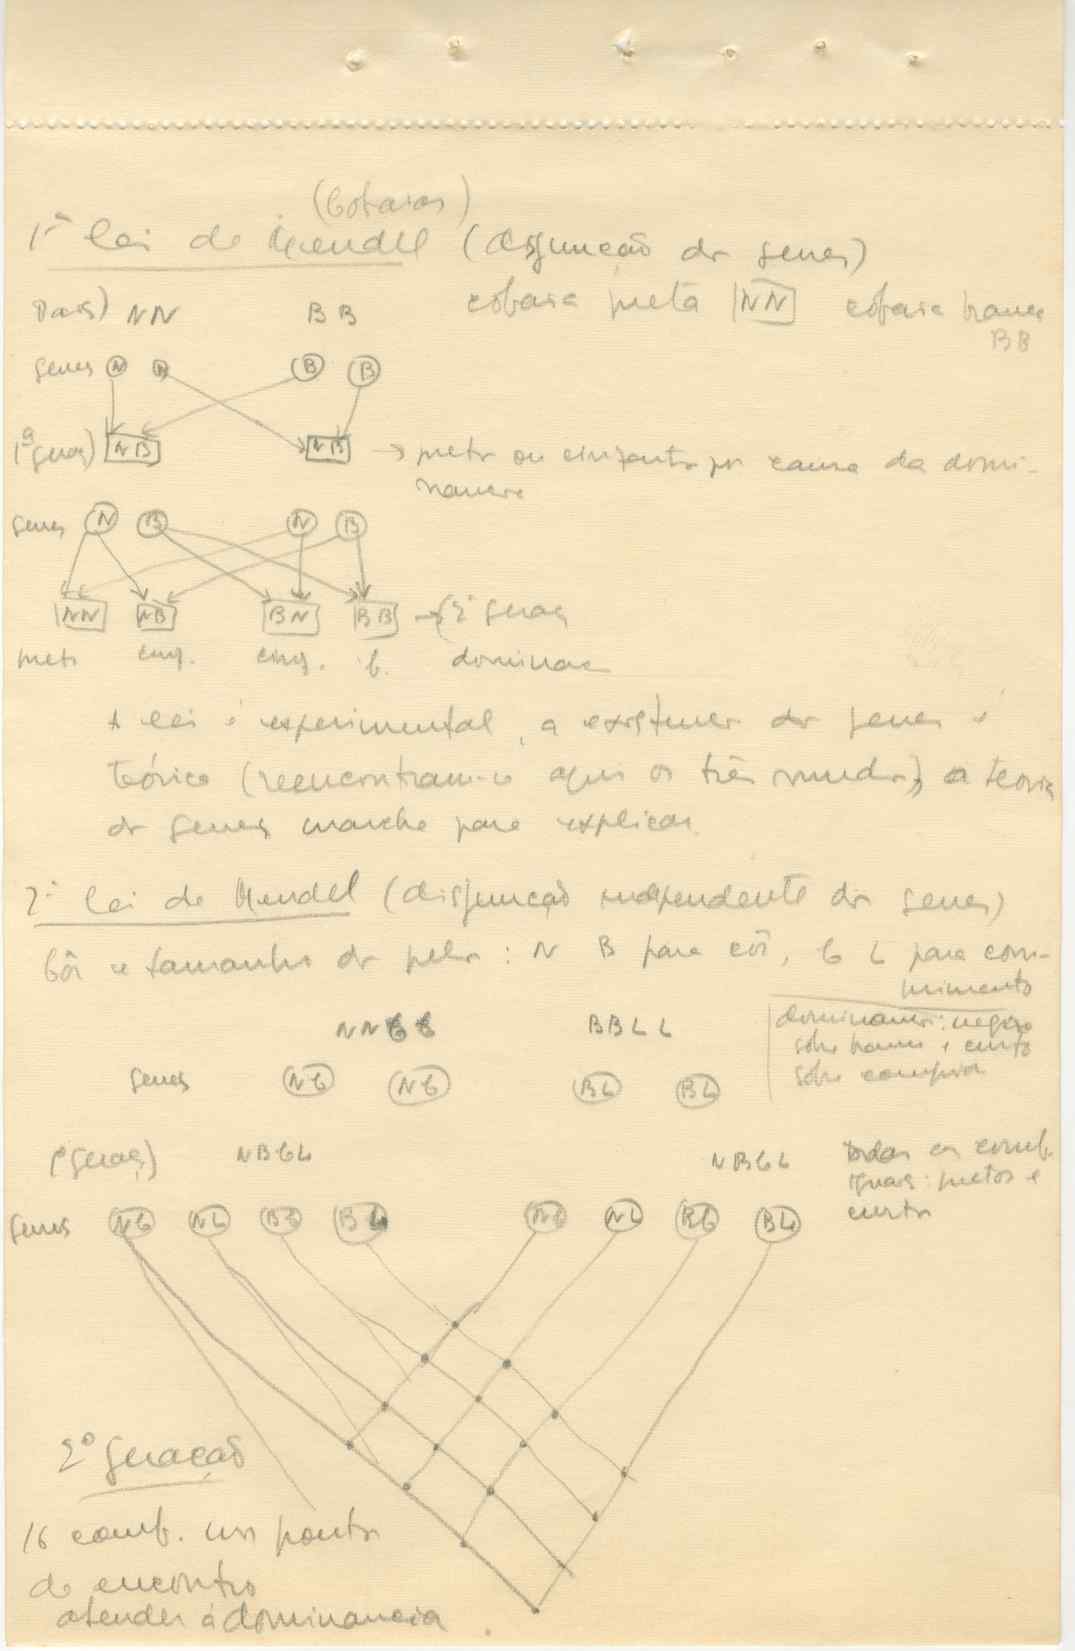 (Cobaias)
1ª lei de Mendel (disjunção dos genes)
Pais) NN BB cobaia preta NN cobaia branca
BB
genes N N B B
1ª geraç) NB NB → preto ou cinzento por causa da domi-
nancia
genes N B N B
NN NB BN BB → 2ª geraç
preto cinz. cinz. b. dominanc
A lei é experimental, a existencia dos genes é
teórica (reencontram-se aqui os três mundos), a teoria
dos genes marcha para explicar.
2ª lei de Mendel (disjunção independente dos genes)
Côr e tamanho do pelo: N B para côr, C L para com-
primento
NNCC BBLL dominancia: negro
sobre branco e curto
sobre comprido
genes NC NC BL BL
1ª geraç) NBCL NBCL todas as comb.
iguais: pretos e
curtos
genes NC NL BC BL NC NL BC BL
2ª geração
16 comb. nos pontos
de encontro
atender á dominancia